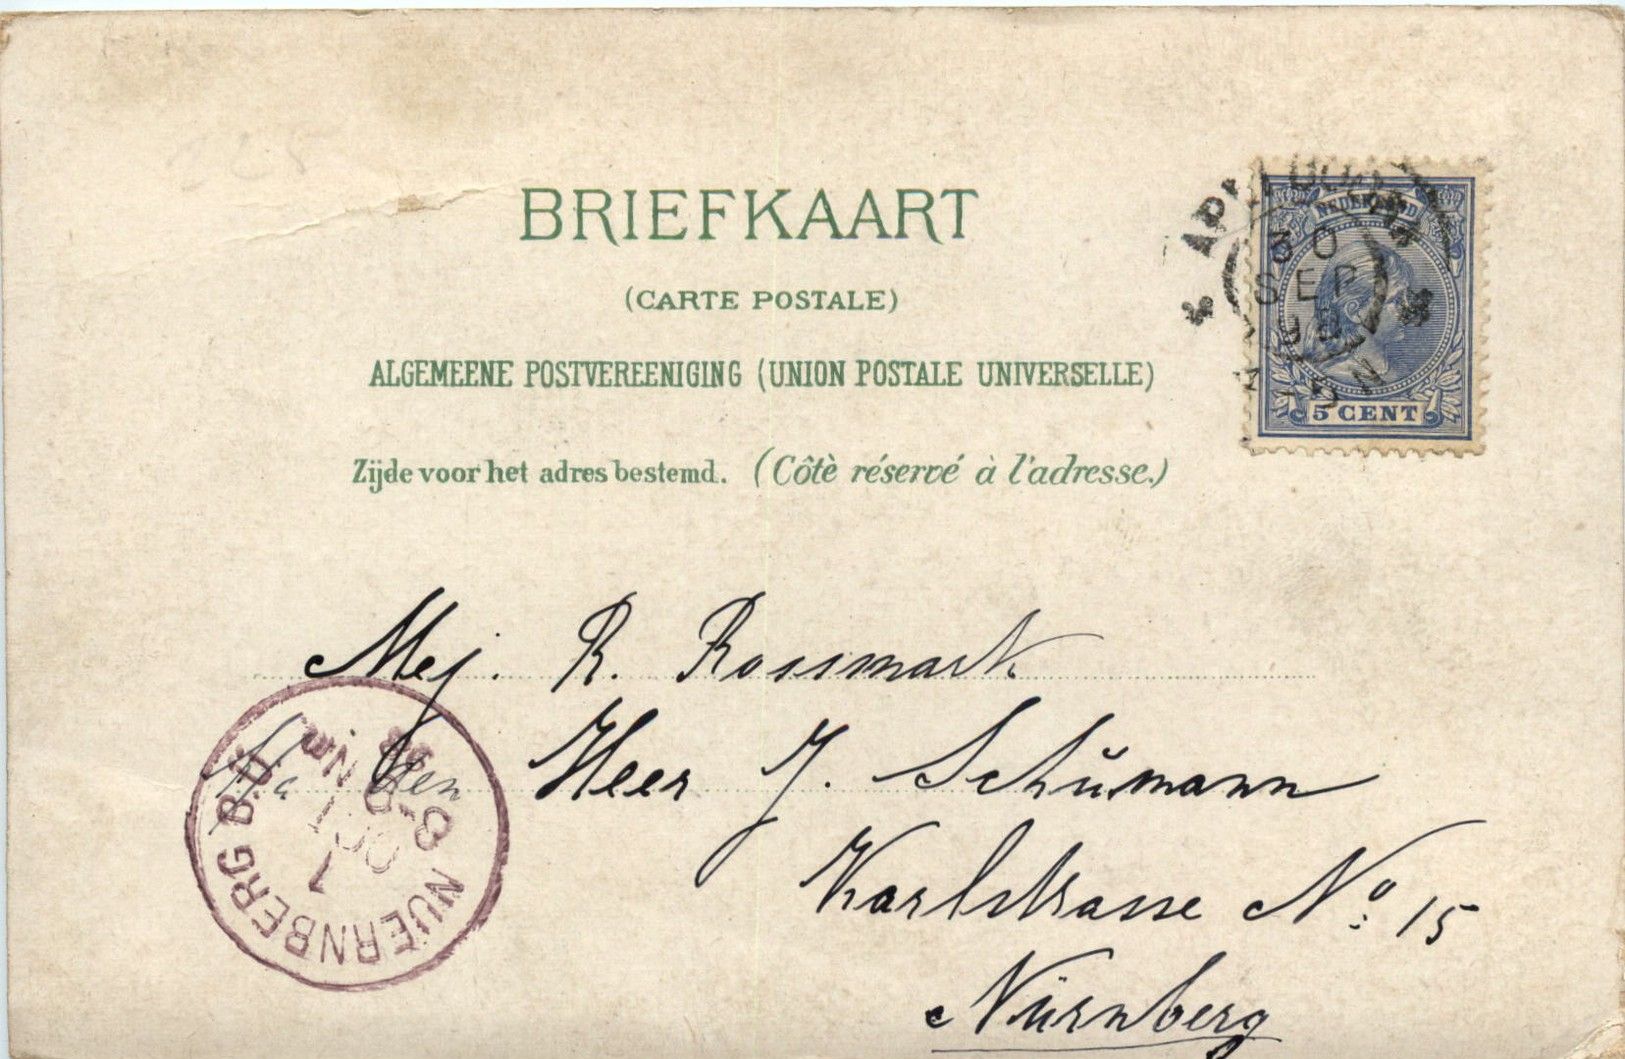 BRIEFKAART
(CARTE POSTALE)
ALGEMEENE POSTVEREENIGING (UNION POSTALE UNIVERSELLE)
Zijde voor het adres bestemd. (Côtè réservé à l'adresse.)
NEDERLAND
30
SEP
5 CENT
Mej. R. Rossmark
den Heer J. Schümann
Karlstrasse No: 15
Nürnberg
NUERNBERG B.O.
1
OCT
8-9 Nm